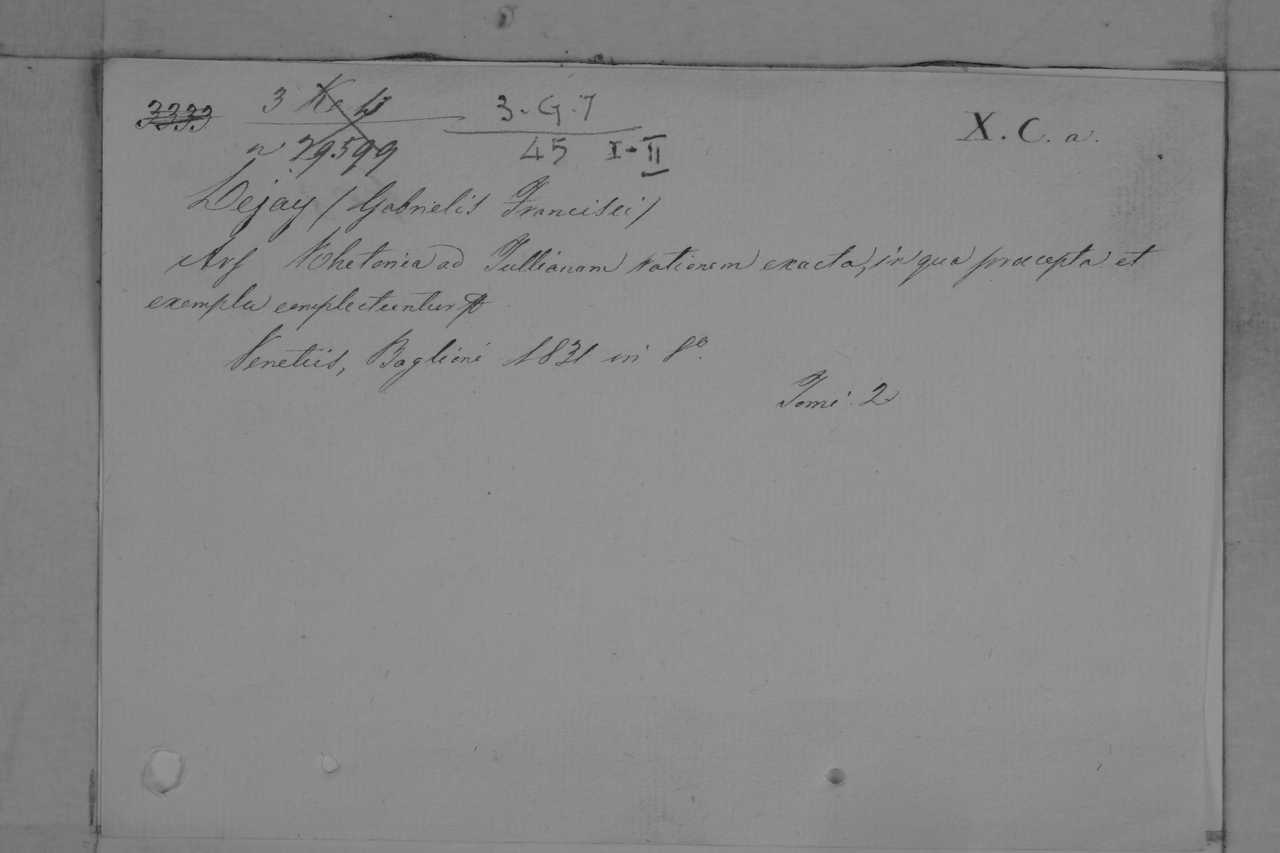 3333 3 K. 4 3. G. 7 X. C. a.
n 29599 45 I-II
Lejay / Gabrielis Francisci /
Ars Rhetorica ad Tullianam rationem exacta, in qua præcepta et
exempla complectuntur
Venetiis, Baglioni 1831 in 8º.
Tomi 2